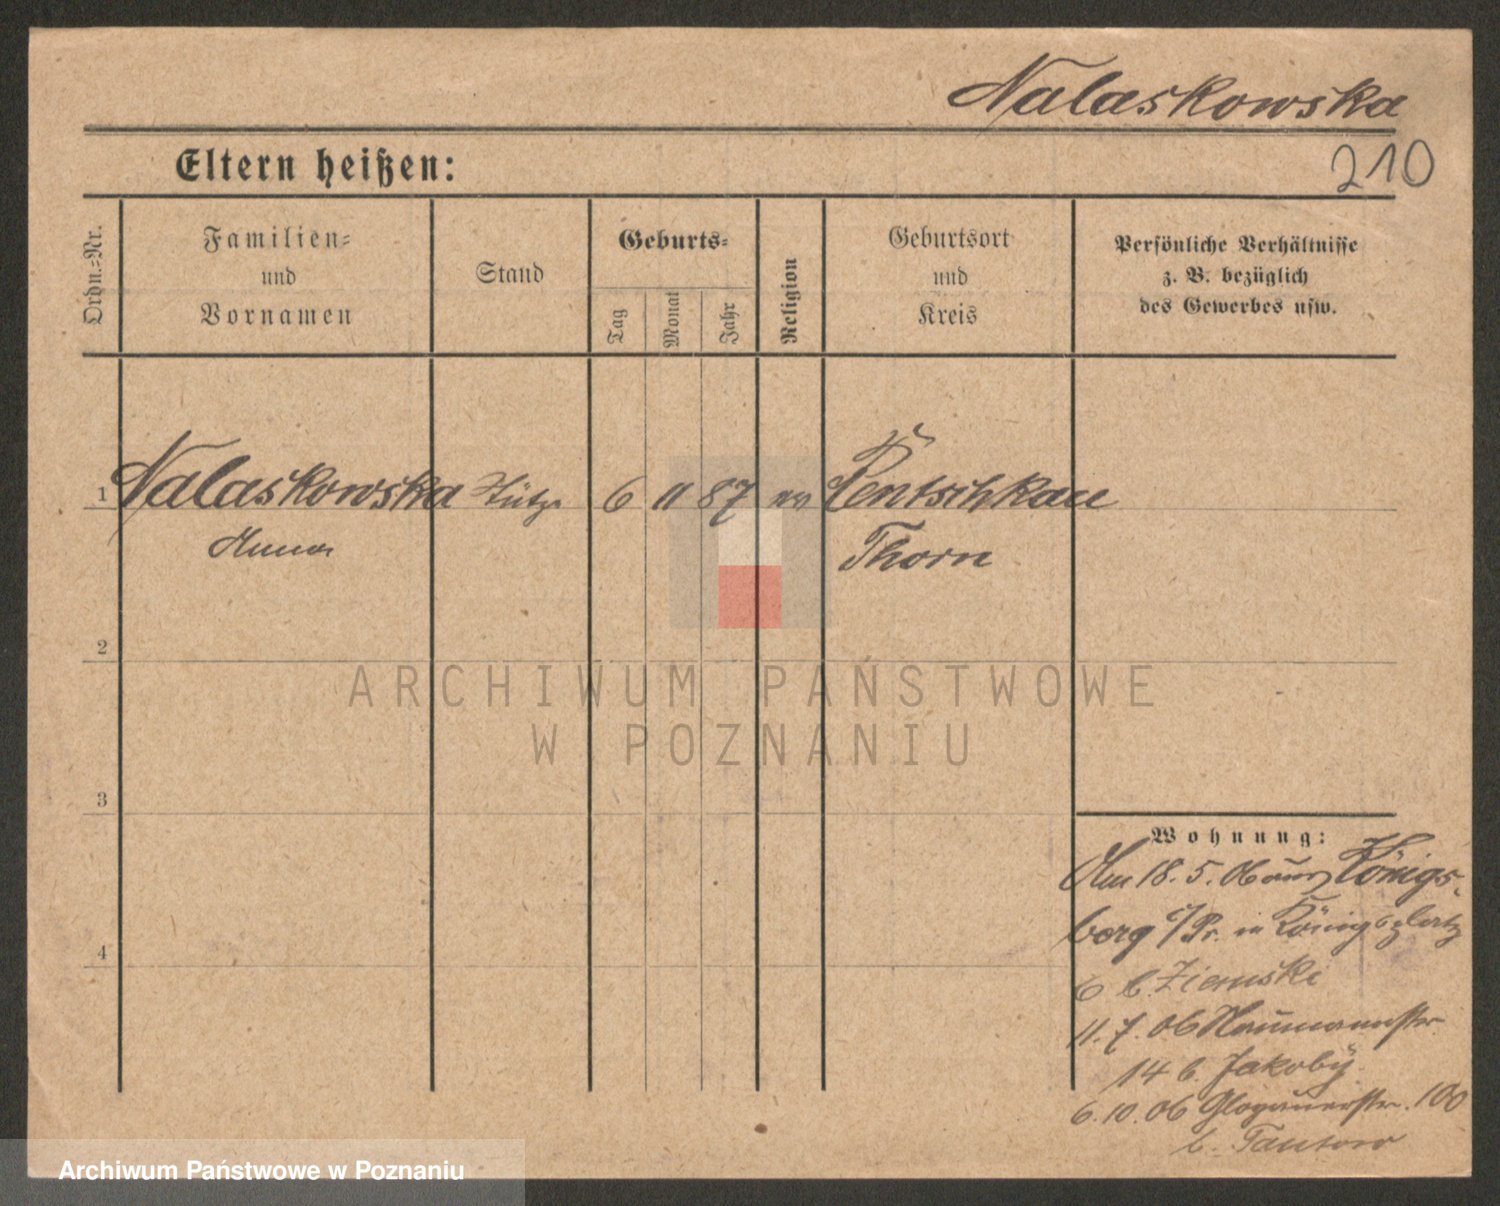 Nalaskowska
Eltern heißen:
210
Ordn.-Nr.
Familien-
und
Vornamen
Stand
Geburts-
Tag
Monat
Jahr
Religion
Geburtsort
und
Kreis
Persönliche Verhältnisse
z. B. bezüglich
des Gewerbes usw.
1 Nalaskowska Stütze 6 11 87 Pentschkau
Anna Thorn
2
3
4
Wohnung:
Am 18. 5. 06 aus Königs-
berg i/Pr. in Königsplatz
6 b. Ziemski
11. 7. 06 Naumannstr.
14 b. Jakoby
6. 10. 06 Glogauerstr. 100
b.
ARCHIWUM PAŃSTWOWE
W POZNANIU
Archiwum Państwowe w Poznaniu